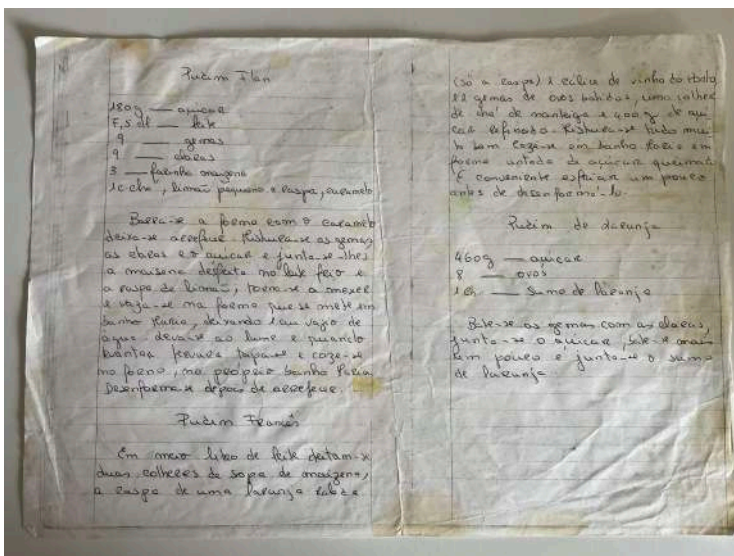 Pudim Flan
180g — açúcar
7,5 dl — leite
9 — gemas
9 — claras
3 — farinha maizena
1c chá, limão pequeno e raspa, caramelo
Barra-se a forma com o caramelo
deixa-se arrefecer. Mistura-se as gemas,
as claras e o açúcar e junta-se-lhes
a maizena desfeita no leite frio e
a raspa de limão, torna-se a mexer
e vaza-se na forma que se mete em
banho Maria, deixando 1 em vazio de
água. deixa-se ao lume e quando
levantar fervura tapa-se e coze-se
no forno, no próprio banho Maria
Desenforma-se depois de arrefecer.
Pudim Francês
Em meio litro de leite deitam-se
duas colheres de sopa de maizena,
a raspa de uma laranja
(só a raspa) 1 cálice de vinho do
12 gemas de ovos batidas, uma colher
de chá de manteiga e 400 g de açú
car refinado. Mistura-se tudo mui
to bem coze-se em banho Maria em
forma untada de açúcar queimado
É conveniente esfriar um pouco
antes de desenformá-lo.
Pudim de laranja
460g — açúcar
8 — ovos
1 ch — Sumo de laranja
Bate-se as gemas com as claras,
junta-se o açúcar, bate-se mais
um pouco e junta-se o sumo
de laranja.